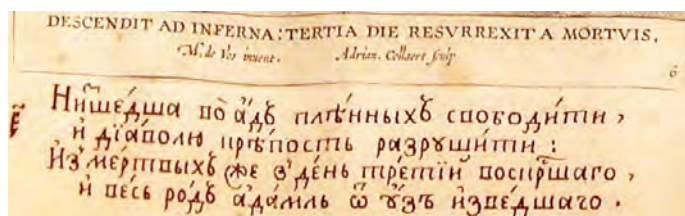 DESCENDIT AD INFERNA: TERTIA DIE RESVRREXIT A MORTVIS.
M. de Vos invent. Adrian. Collaert sculp
6
є҃ Ни́ше́дша во а́дъ плѣ́нныхъ свободи́ти ,
и дїа́волю крѣ́пость разруши́ти :
И́з̾ме́ртвыхъ же в̾де́нь тре́тїи воскр҃шаго ,
и ве́сь ро́дъ ада́мль ѿ у́зъ изве́дшаго .